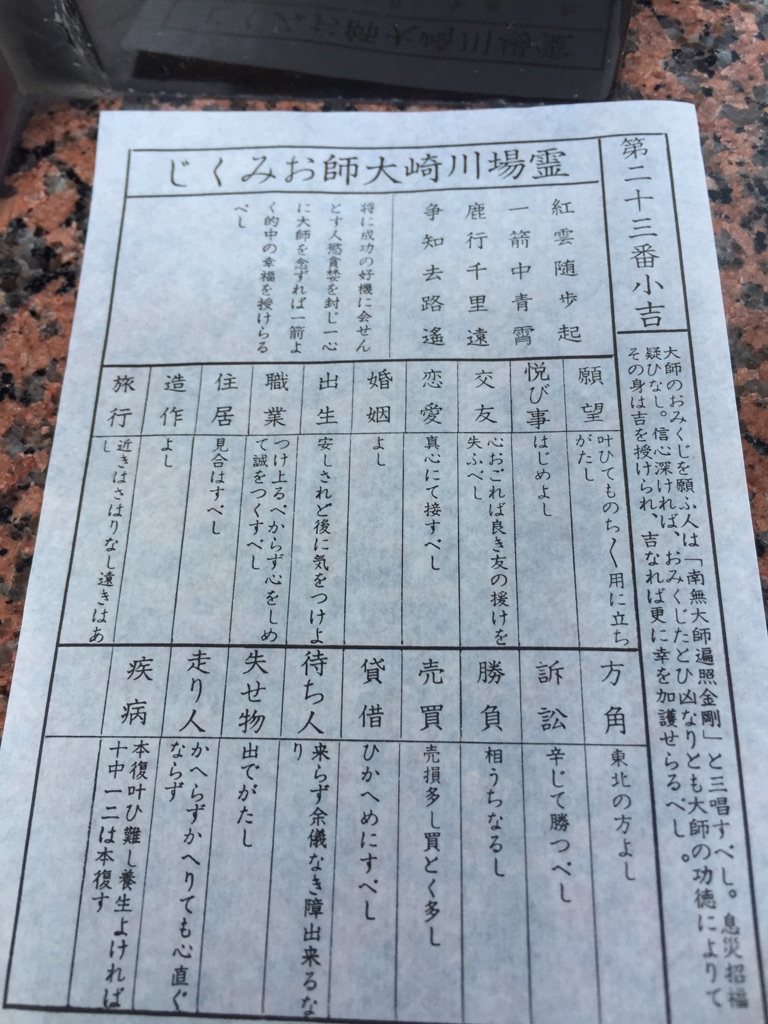 第二十三番小吉
大師のおみくじを願ふ人は「南無大師遍照金剛」と三唱すべし。息災招福
疑ひなし。信心深ければ、おみくじたとひ凶なりとも大師の功徳によりて
その身は吉を授けられ、吉なれば更に幸を加護せらるべし。
霊場川崎大師おみくじ
紅雲随歩起
一箭中青霄
鹿行千里遠
争知去路遙
将に成功の好機に会せん
とす人慾貪婪を封じ一心
に大師を念ずれば一箭よ
く的中の幸福を授けらる
べし
願望
叶ひてものち〱用に立ち
がたし
悦び事
はじめよし
交友
心おごれば良き友の援けを
失ふべし
恋愛
真心にて接すべし
婚姻
よし
出生
安しされど後に気をつけよ
職業
つけ上るべからず心をしめ
て誠をつくすべし
住居
見合はすべし
造作
よし
旅行
近きはさはりなし遠きはあ
し
方角
東北の方よし
訴訟
辛じて勝つべし
勝負
相うちなるし
売買
売損多し買とく多し
貸借
ひかへめにすべし
待ち人
来らず余儀なき障出来るな
り
失せ物
出でがたし
走り人
かへらずかへりても心直ぐ
ならず
疾病
本復叶ひ難し養生よければ
十中一二は本復す